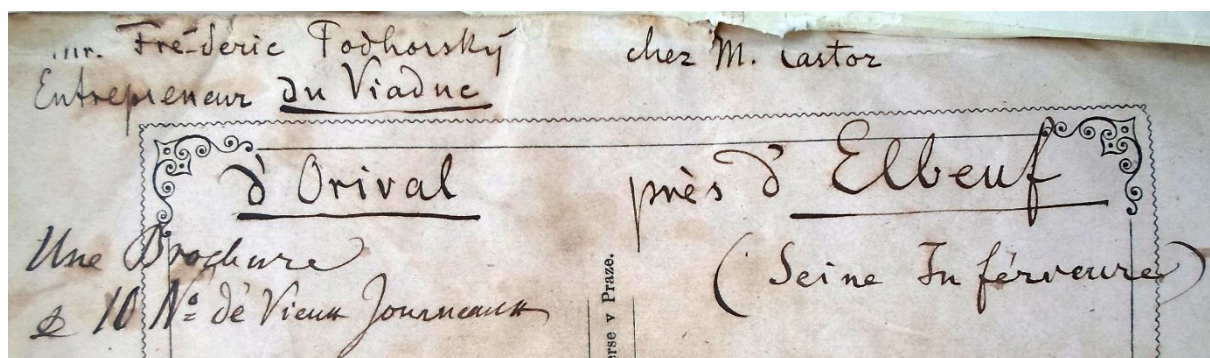 Mr. Fréderic Podhorský chez M. Castor
Entrepreneur du Viaduc
d'Orival près d'Elbeuf
Une Brochure (Seine Inférieure)
& 10 Nº de Vieux Journeaux
erse v Praze.